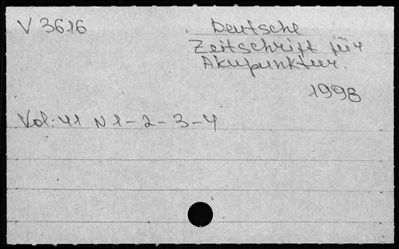 V 3616
Deutsche
Zeitschrift für
Akupunktur.
1998
Vol: 41 N 1-2-3-4